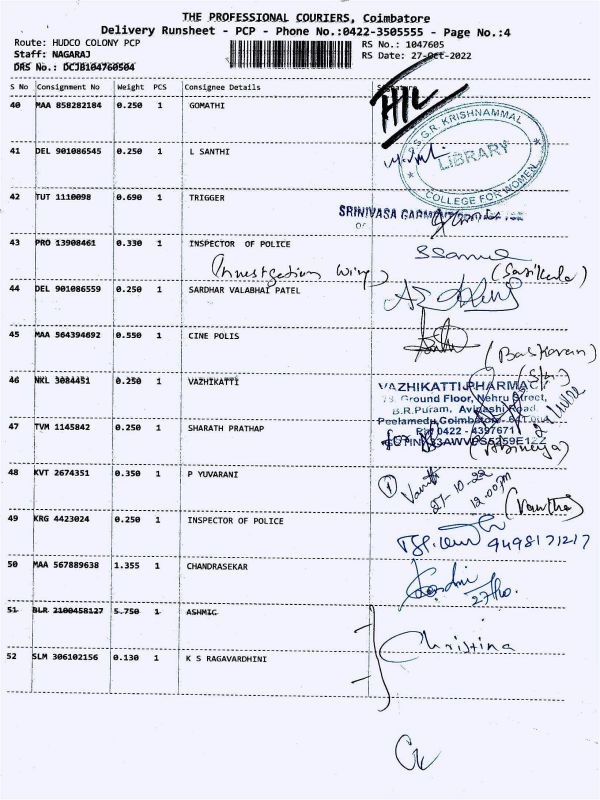 THE PROFESSIONAL COURIERS, Coimbatore
Delivery Runsheet - PCP - Phone No.:0422-3505555 - Page No.:4
Route: HUDCO COLONY PCP
RS No.: 1047605
Staff: NAGARAJ
RS Date: 27-Oct-2022
DRS No.: DCJB104760504
S No Consignment No Weight PCS Consignee Details
40 MAA 858282184 0.250 1 GOMATHI
P.S.G.R. KRISHNAMMAL
LIBRARY
COLLEGE FOR WOMEN
41 DEL 901086545 0.250 1 L SANTHI
42 TUT 1110098 0.690 1 TRIGGER
SRINIVASA
43 PRO 13908461 0.330 1 INSPECTOR OF POLICE
(Investgation wing)
(Sasikala)
44 DEL 901086559 0.250 1 SARDHAR VALABHAI PATEL
45 MAA 564394692 0.550 1 CINE POLIS
(Baskaran)
46 NKL 3084451 0.250 1 VAZHIKATTI
VAZHIKATTI PHARMACY
78, Ground Floor, Nehru Street,
B.R.Puram, Avinashi Road,
Peelamedu, Coimbatore
Ph: 0422 - 4397671
47 TVM 1145842 0.250 1 SHARATH PRATHAP
48 KVT 2674351 0.350 1 P YUVARANI
27-10-22
12.00pm
(Vanitha)
49 KRG 4423024 0.250 1 INSPECTOR OF POLICE
9498171217
50 MAA 567889638 1.355 1 CHANDRASEKAR
51 BLR 2100458127 5.750 1 ASHMIC
Christina
52 SLM 306102156 0.130 1 K S RAGAVARDHINI